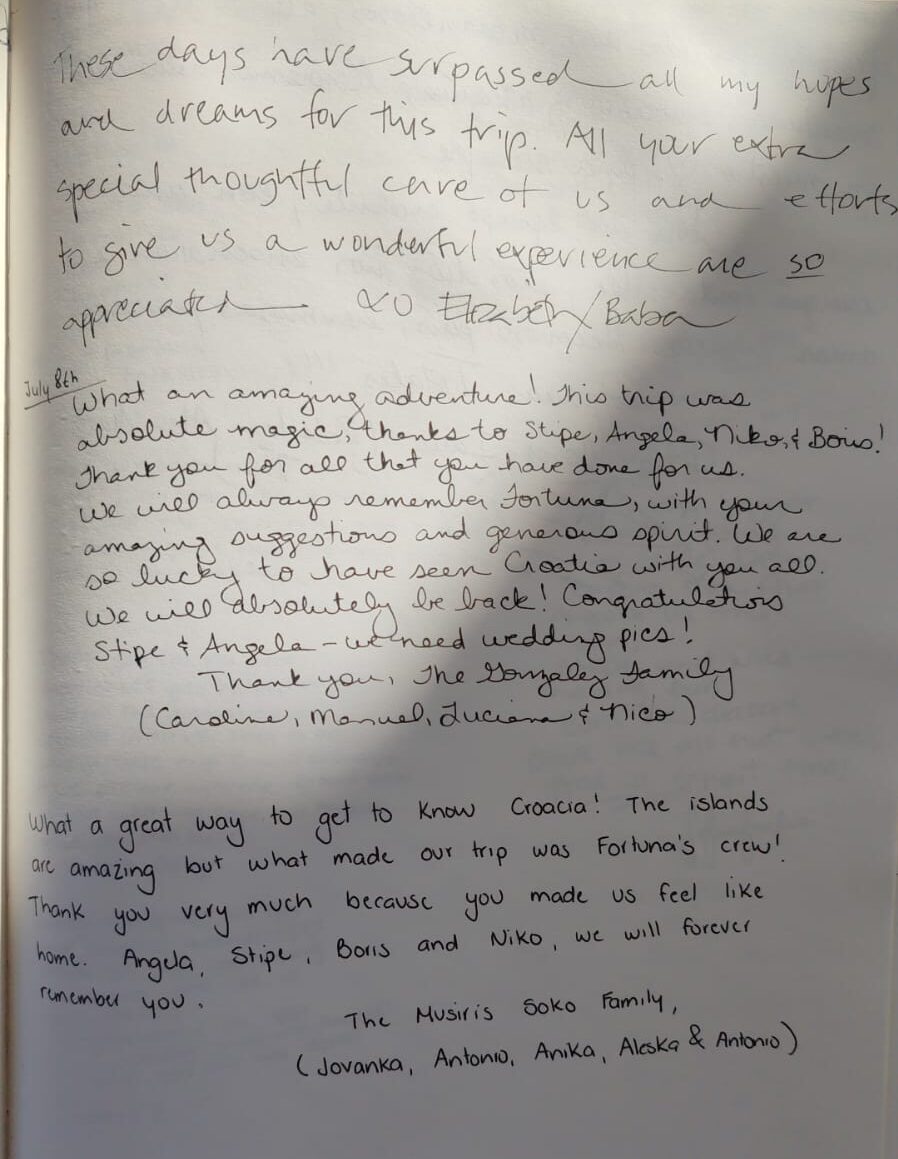 These days have surpassed all my hopes
and dreams for this trip. All your extra
special thoughtful care of us and efforts
to give us a wonderful experience are so
appreciated XO Elizabeth/Baba
July 8th
What an amazing adventure! This trip was
absolute magic, thanks to Stipe, Angela, Niko, & Boris!
Thank you for all that you have done for us.
We will always remember Fortuna, with your
amazing suggestions and generous spirit. We are
so lucky to have seen Croatia with you all.
We will absolutely be back! Congratulations
Stipe & Angela - we need wedding pics!
Thank you, The Gonzalez Family
(Caroline, Manuel, Luciana & Nico)
What a great way to get to know Croacia! The islands
are amazing but what made our trip was Fortuna's crew!
Thank you very much because you made us feel like
home. Angela, Stipe, Boris and Niko, we will forever
remember you.
The Musiris Soko Family,
(Jovanka, Antonio, Anika, Aleska & Antonio)